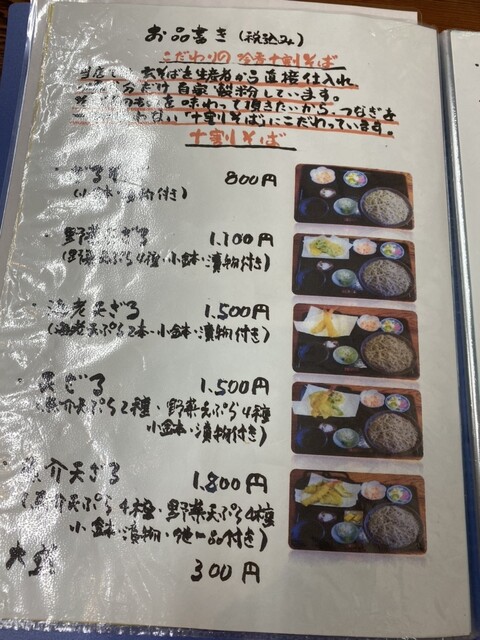 お品書き(税込み)
こだわりの 冷香十割そば
玄そばを生産者から直接仕入れ
分だけ自家製粉しています。
味わって頂きたいから、つなぎを
ない「十割そば」にこだわっています。
十割そば
800円
付き)
野菜天ざる 1,100円
天ぷら4種・小鉢・漬物付き)
海老天ざる 1,500円
(海老天ぷら2本・小鉢・漬物付き)
天ざる 1,500円
魚介天ぷら2種・野菜天ぷら4種
小鉢・漬物付き)
魚介天ざる 1,800円
魚介天ぷら4種・野菜天ぷら4種
小鉢・漬物・他一品付き)
大盛 300円